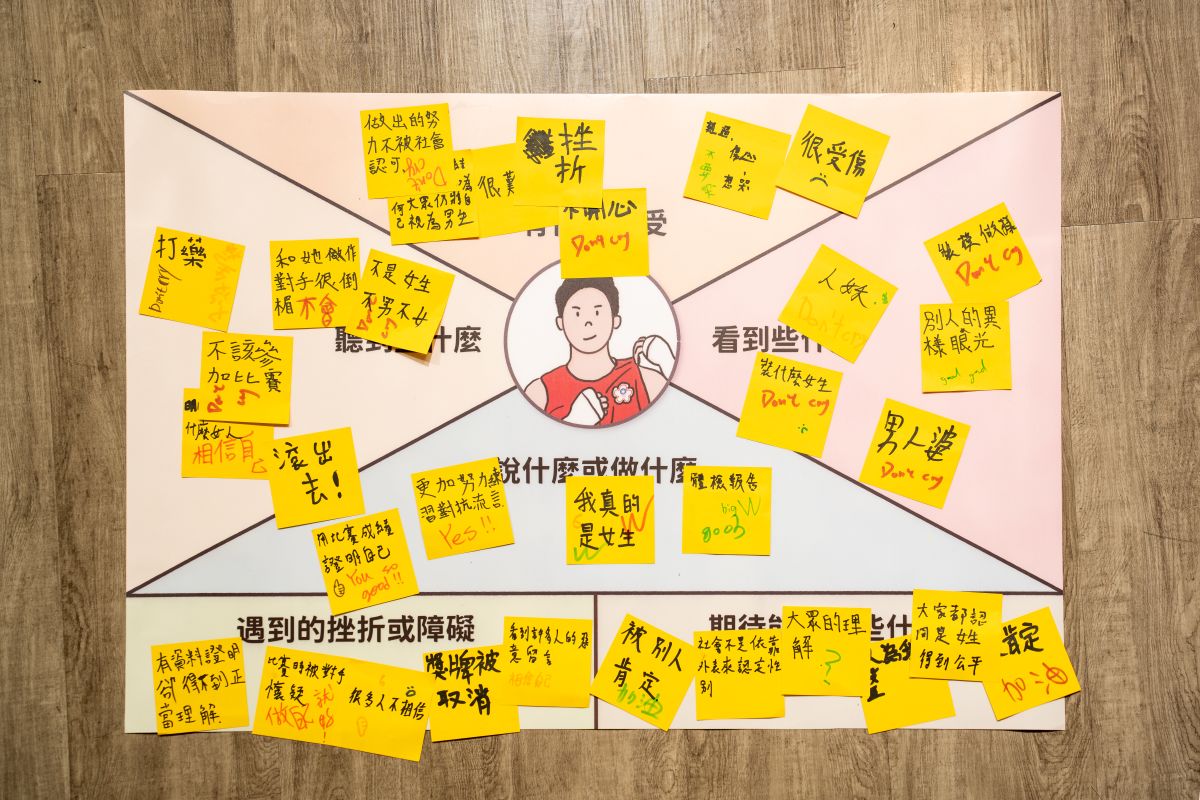 做出的努
力不被社會
認可,
Don't
cry
何大眾仍將自
己視為男生
很
挫
折
不開心
Don't cry
難過,
傷心
想哭
不要哭
很受傷
受
打藥
Don't cry
和她做作
對手很倒
楣
不是女生
不男不女
Don't
cry
聽到
什麼
不該參
加比賽
Don't
cry
什麼女人
相信自
己
滾出
去!
看到些什
人妖
Don't cry
Don't cry
別人的異
樣眼光
good good
裝什麼女生
Don't cry
男人婆
Don't cry
說什麼或做什麼
更加努力練
習對抗流言
Yes!!
我真的
是女生
W
體檢報告
big W
good
用比賽成績
證明自己
You so
good!!
遇到的挫折或障礙
有資料證明
卻得不到正
當理解
比賽時被對手
懷疑
很多人不相信
獎牌被
取消
看到許多人的惡
意留言
相信自己
期待
些什
被別人
肯定
加油
社會不是依靠
外表來認定性
別
大眾的理
解
?
大家都認
同是女生
得到公平
肯定
加油